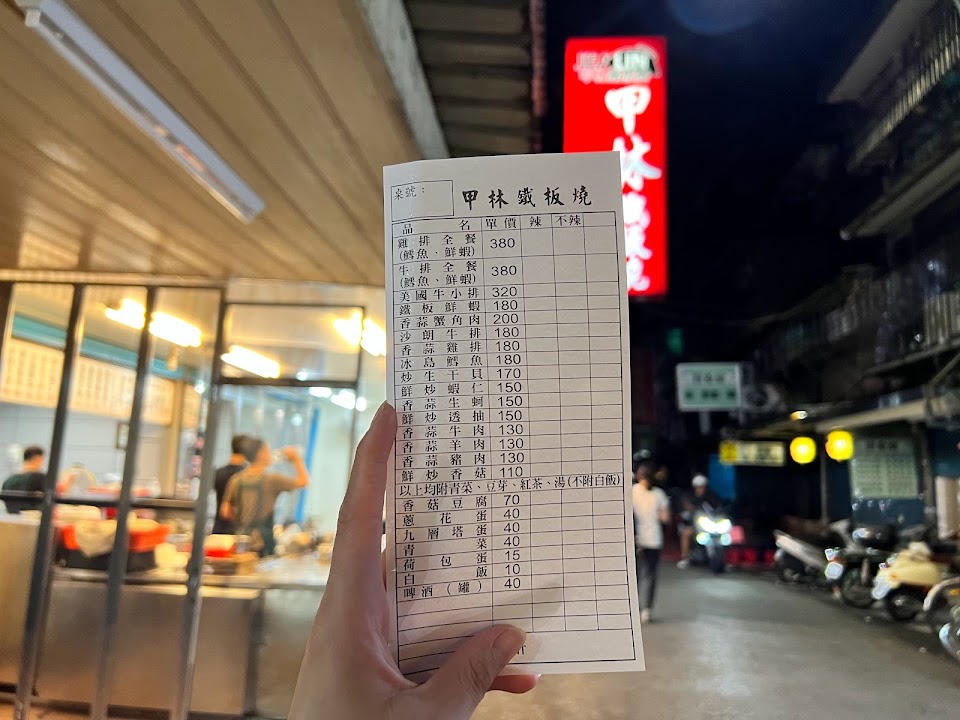 甲林
桌號：
甲林鐵板燒
品名 單價 辣 不辣
雞排全餐 380
(鱈魚、鮮蝦)
牛排全餐 380
(鱈魚、鮮蝦)
美國牛小排 320
鐵板鮮蝦 180
香蒜蟹角肉 200
沙朗牛排 180
香蒜雞排 180
冰島鱈魚 180
炒生干貝 170
鮮炒蝦仁 150
香蒜生蚵 150
鮮炒透抽 150
香蒜牛肉 130
香蒜羊肉 130
香蒜豬肉 130
鮮炒香菇 110
以上均附青菜、豆芽、紅茶、湯(不附白飯)
香菇豆腐 70
蔥花蛋 40
九層塔蛋 40
青菜 40
荷包蛋 15
白飯 10
啤酒(罐) 40